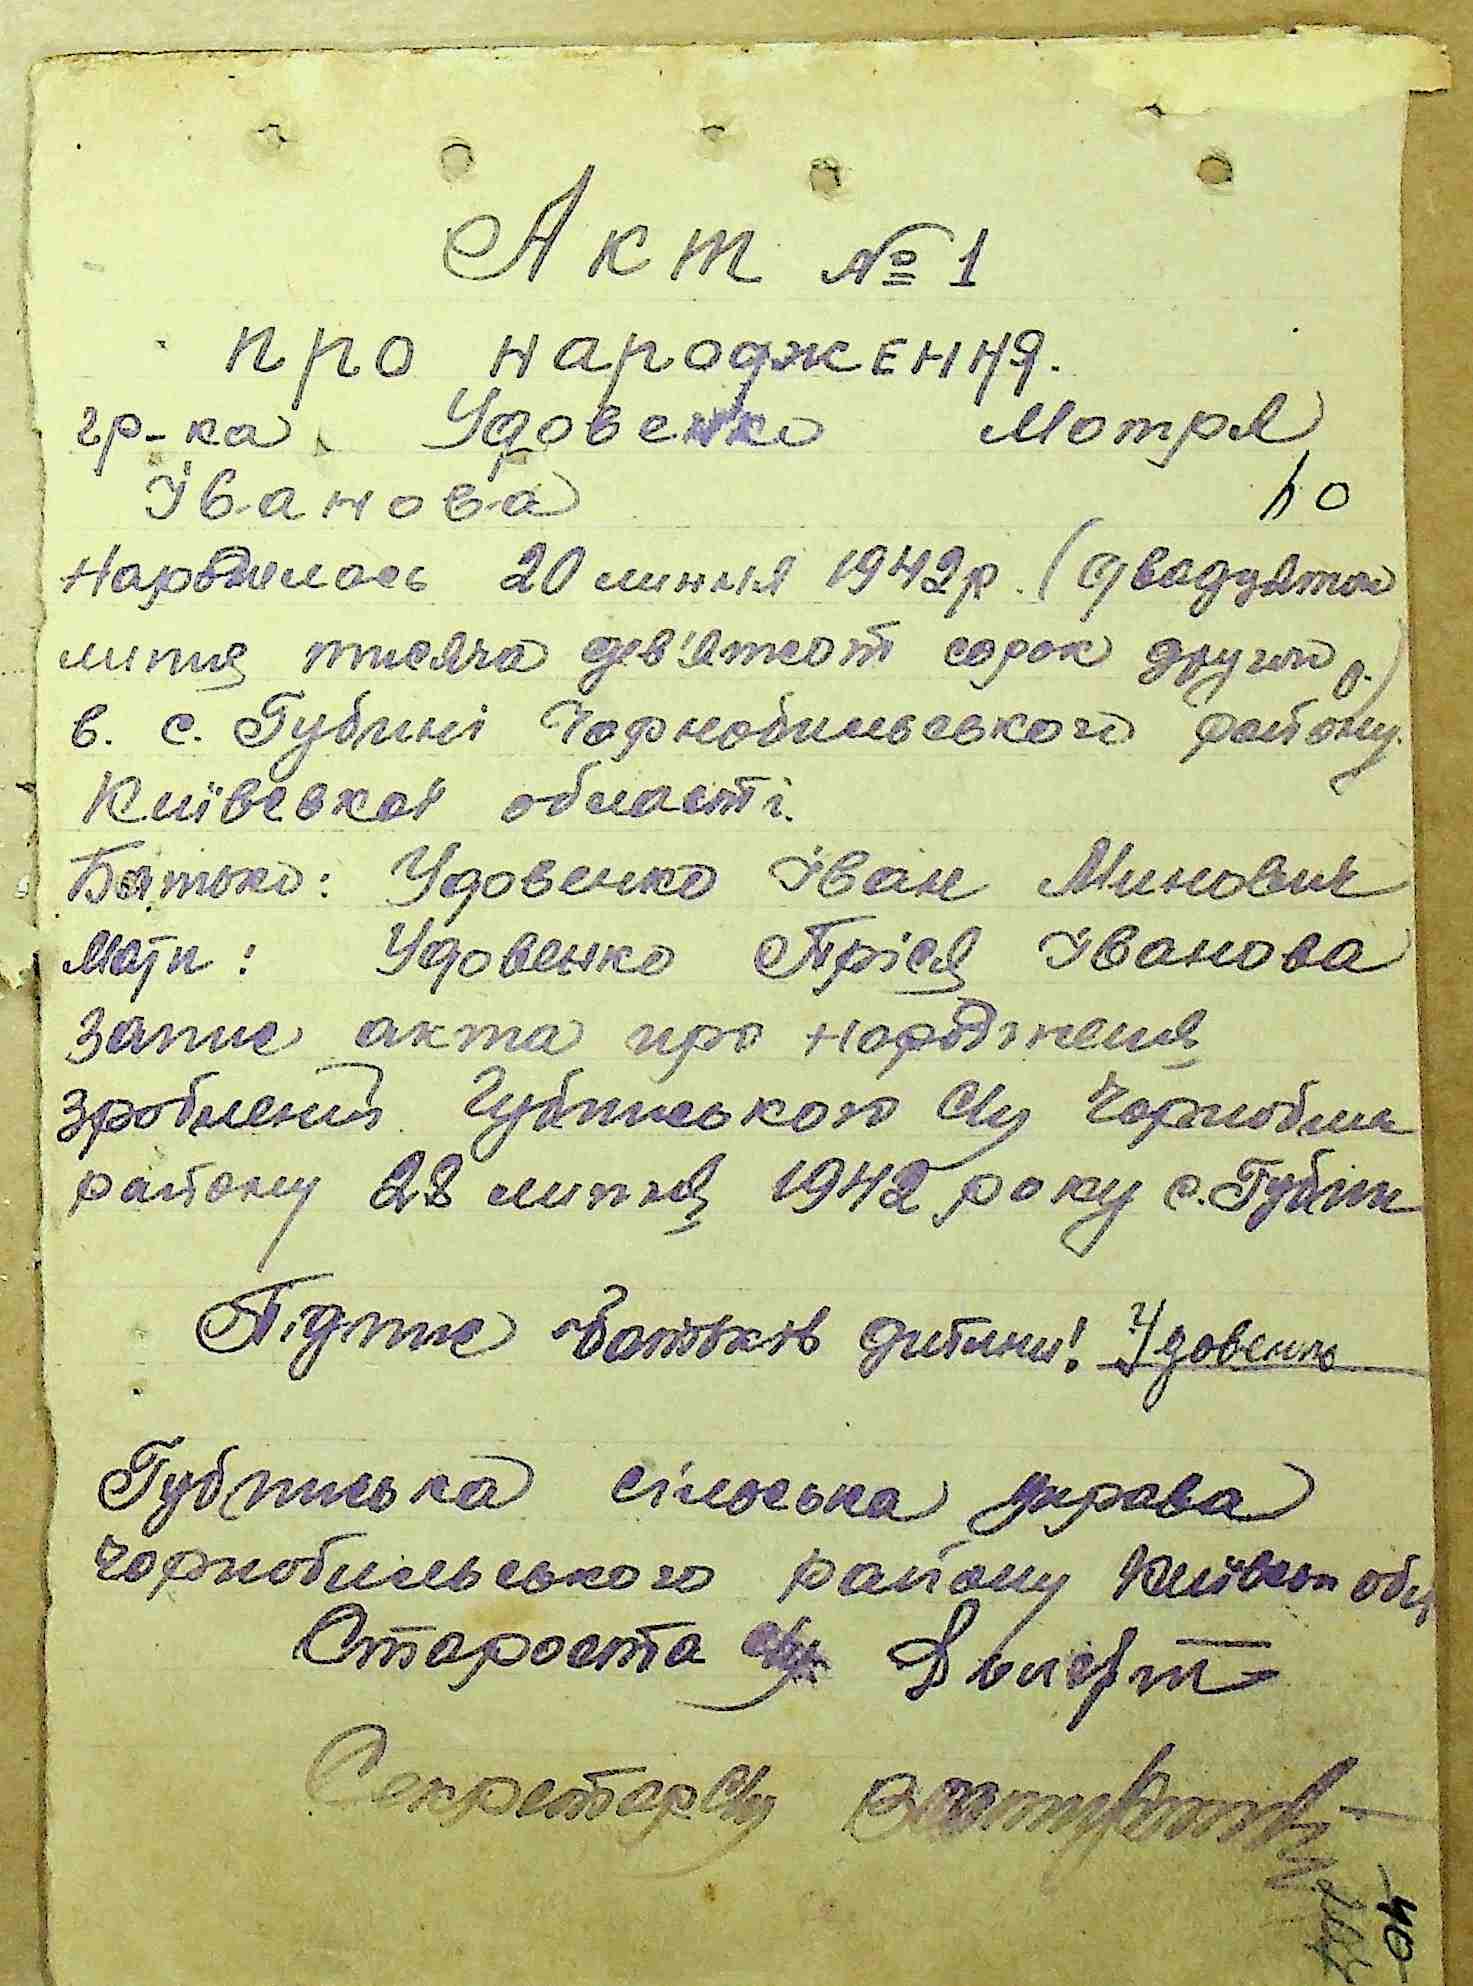 Акт № 1
про народження.
гр-ка Удовенко Мотря
Іванова
40
Народилась 20 липня 1942р. (двадцятого
липня тисяча дев'ятсот сорок другого р.)
в. с. Губині Чорнобильського району
Київської області.
Батько: Удовенко Іван Минович
Мати: Удовенко Пріся Іванова
Запис акта про народження
зроблений Губинською СУ Чорнобиль
району 28 липня 1942 року с. Губін
Підпис батьків дитини! Удовенко
Губинська сільська управа
Чорнобильського району Київськ обл
Староста СУ
Секретар СУ
40